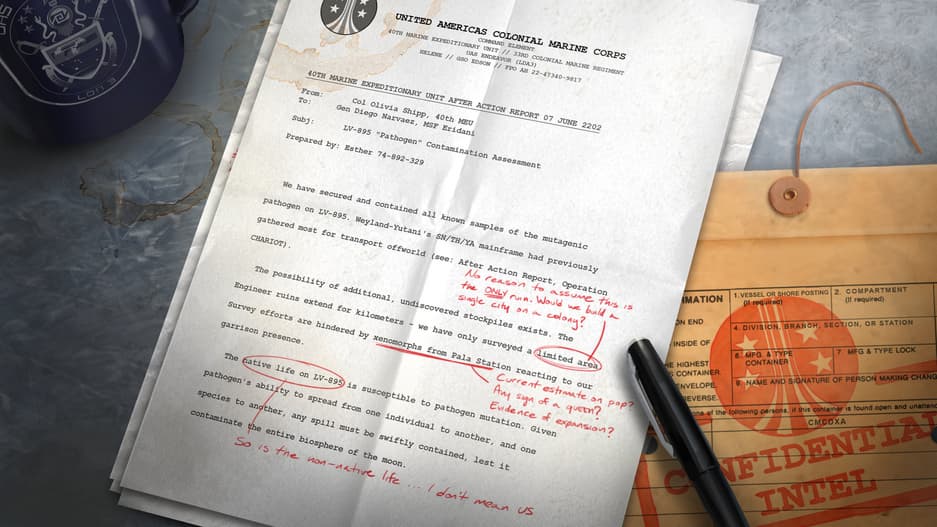 UNITED AMERICAS COLONIAL MARINE CORPS
COMMAND ELEMENT
40TH MARINE EXPEDITIONARY UNIT // 33RD COLONIAL MARINE REGIMENT
UAS ENDEAVOR (LDA3)
HELENE // GSO EDSON // FPO AH 22-47340-9817
40TH MARINE EXPEDITIONARY UNIT AFTER ACTION REPORT 07 JUNE 2202
From: Col Olivia Shipp, 40th MEU
To: Gen Diego Narvaez, MSF Eridani
Subj: LV-895 "Pathogen" Contamination Assessment
Prepared by: Esther 74-892-329
We have secured and contained all known samples of the mutagenic
pathogen on LV-895. Weyland-Yutani's SN/TH/YA mainframe had previously
gathered most for transport offworld (see: After Action Report, Operation
CHARIOT).
No reason to assume this is
the ONLY ruin. Would we build a
single city on a colony?
The possibility of additional, undiscovered stockpiles exists. The
Engineer ruins extend for kilometers - we have only surveyed a limited area
Survey efforts are hindered by xenomorphs from Pala Station reacting to our
garrison presence.
Current estimate on pop?
Any sign of a queen?
Evidence of expansion?
The native life on LV-895 is susceptible to pathogen mutation. Given
pathogen's ability to spread from one individual to another, and one
species to another, any spill must be swiftly contained, lest it
contaminate the entire biosphere of the moon.
So is the non-native life... I don't mean us
MATION
1. VESSEL OR SHORE POSTING
(If required)
2. COMPARTMENT
(If required)
ON END
4. DIVISION, BRANCH, SECTION, OR STATION
INSIDE OF
6. MFG. & TYPE
CONTAINER
7 MFG & TYPE LOCK
HIGHEST
CONTAINER
9. NAME AND SIGNATURE OF PERSON MAKING CHANG
ENVELOPE
REVERSE.
of the following persons, if this container is found open and unatten
CMCDXA
CONFIDENTIAL
INTEL